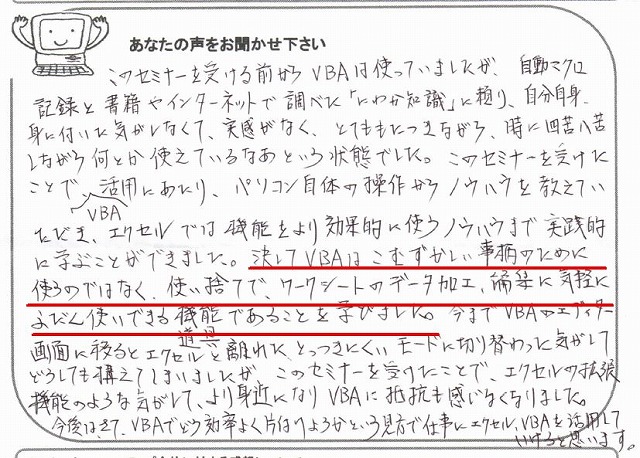 あなたの声をお聞かせ下さい
このセミナーを受ける前から VBAは使っていましたが、自動マクロ
記録と書籍やインターネットで調べた「にわか知識」に頼り、自分自身
身に付いた気がしなくて、実感がなく、とてももたつきながら、時に四苦八苦
しながら何とか使えているなあという状態でした。このセミナーを受けた
ことで、VBA活用にあたり、パソコン自体の操作からノウハウを教えてい
ただき、エクセルでは機能をより効果的に使うノウハウまで実践的
に学ぶことができました。決してVBAはこむずかしい事柄のために
使うのではなく、使い捨てで、ワークシートのデータ加工、編集に気軽に
ふだん使いできる機能道具であることを学びました。今までVBAのエディター
画面に移るとエクセルと離れた、とっつきにくいモードに切り替わった気がして
どうしても構えてしまいましたが、このセミナーを受けたことで、エクセルの拡張
機能のような気がして、より身近になりVBAに抵抗も感じなくなりました。
今後は、VBAでどう効率よく片付けようかという見方で仕事にエクセル、VBAを活用して
いけると思います。